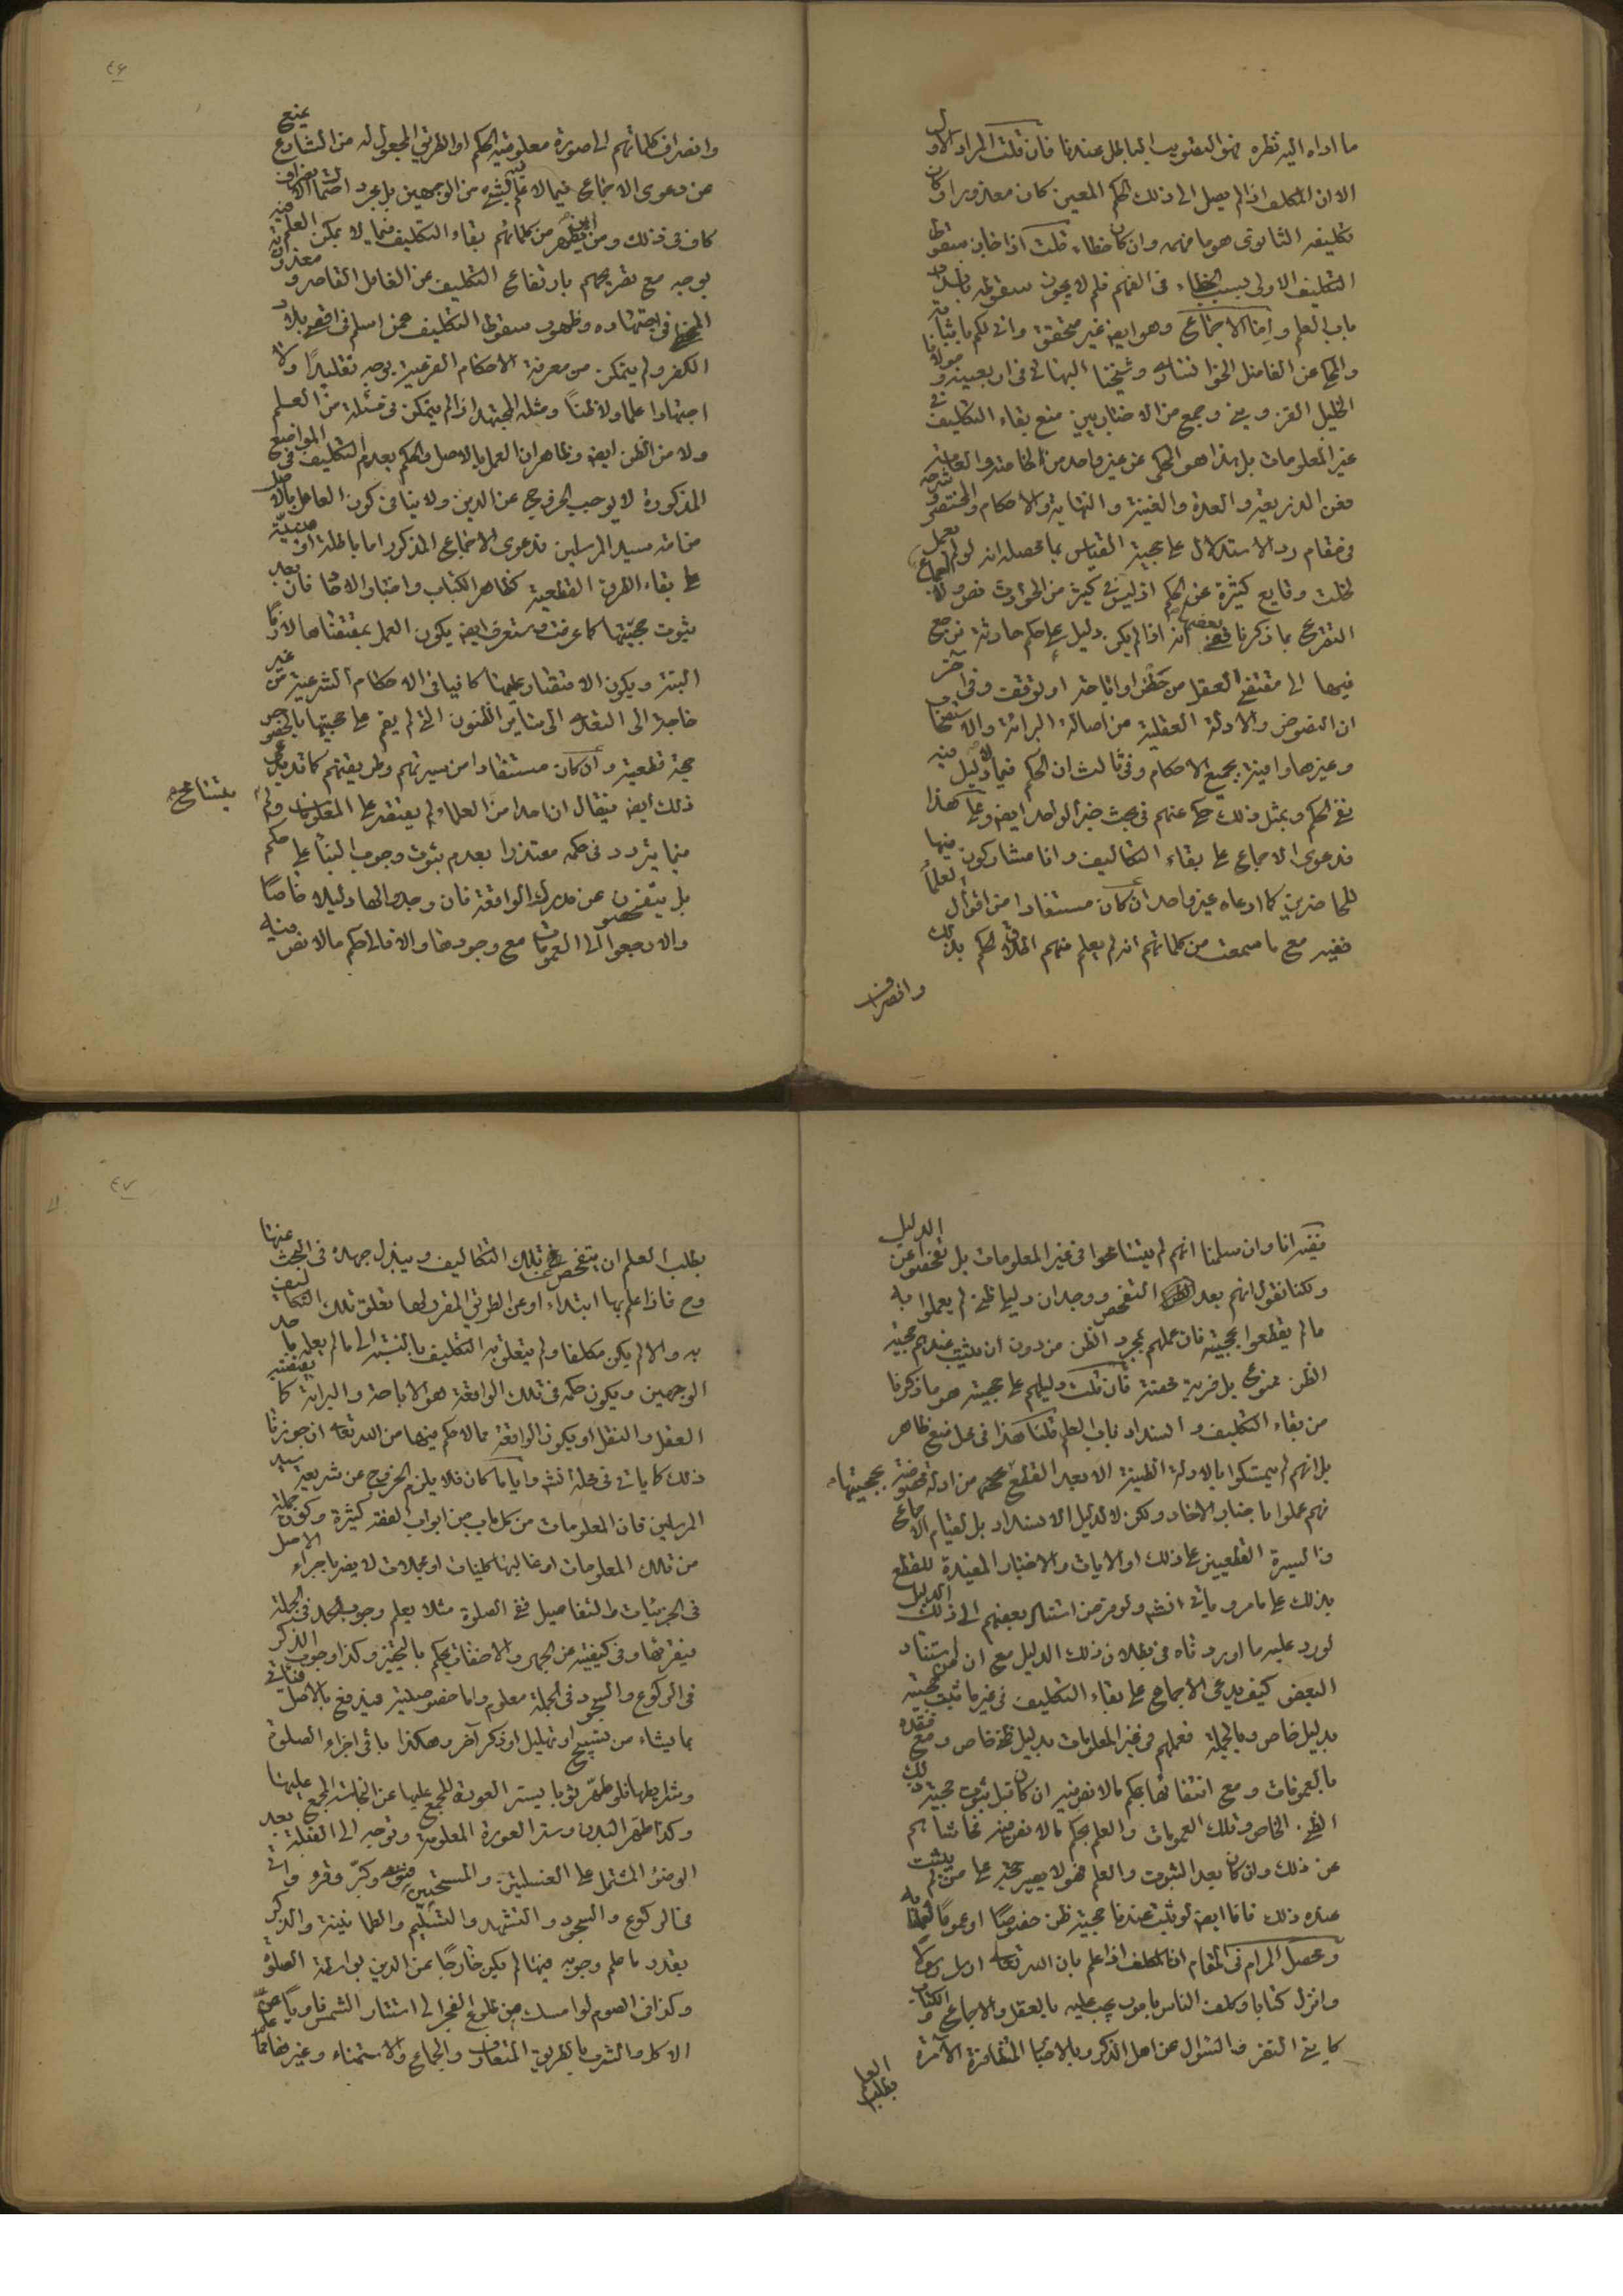 ما اداه اليه نظره فهو التصويب الباطل عندنا فان قلت المراد الاول
الا ان المكلف اذا لم يصل الى ذلك الحكم المعين كان معذورا وكان
تكليفه الثانوى هو ما فهمه وان كان خطاء قلت اذا جاز سقوط
التكليف الاولى بسبب الخطاء فى الفهم فلم لا يجوز سقوطه بانسداد
باب العلم واما الاجماع وهو ايضا غير متحقق وانى لكم باثباته
والمحكى عن الفاضل الخوانسارى وشيخنا البهائى فى اربعينه و مولانا
الخليل القزوينى وجمع من الاخباريين منع بقاء التكليف فى
غير المعلومات بل هذا هو المحكى عن غير واحد من الخاصة والعامة
فعن الذريعة والعدة والغنية والنهاية والاحكام والمختصر و شرحه
فى مقام رد الاستدلال على حجية القياس بما محصله انه لو لم يعمل
لخلت وقايع كثيرة عن الحكم اذ ليس فى كثير من الحوادث نص ولا اجماع
التفرع بما ذكرنا ففى بعضها انه اذا لم يكن دليل على حكم حادثة نرجع
فيها الى مقتضى العقل من حظر او اباحة او توقف وفى آخر
ان النصوص والادلة العقلية من اصالة البرائة والاستصحاب
وغيرها وافية بجميع الاحكام وفى ثالث ان الحكم فيما لا دليل فيه
نفى الحكم وبمثل ذلك حكى عنهم فى بحث خبر الواحد ايضا وعلى هذا
فدعوى الاجماع على بقاء التكاليف وانا مشاركون فيها
للحاضرين كما ادعاه غير واحد ان كان مستفادا من اقوال العلماء
ففيه مع ما سمعت من كلماتهم انه لم يعلم منهم اطلاق الحكم بذلك
وانصراف
٤٦
وانصراف كلماتهم الى صورة معلومية الحكم او الطريق المجعول له من الشارع يمنع
عن دعوى الاجماع فيما لا علم فيه بشئ من الوجهين بل مجرد احتمال الانصراف
كاف فى ذلك ومن اين يظهر من كلماتهم بقاء التكليف فيما لا يمكن العلم فيه
بوجه مع تصريحهم بارتفاع التكليف عن الغافل القاصر و معذورية
المخطى فى اجتهاده وظهور سقوط التكليف عمن اسلم فى اقصى بلاد
الكفر ولم يتمكن من معرفة الاحكام الفرعية بوجه تقليدا ولا
اجتهادا علما ولا ظنا ومثله المجتهد اذا لم يتمكن فى مسئلة من العلم
ولا من الظن ايضا وظاهر ان العمل بالاصل والحكم بعدم التكليف فى المواضع
المذكورة لا يوجب الخروج عن الدين ولا ينافى كون العامل بالاصل
من امة سيد المرسلين فدعوى الاجماع المذكور اما باطلة او مبنية
على بقاء الطرق القطعية كظاهر الكتاب واخبار الاحاد فان بعد
ثبوت حجيتها كما عرفت وستعرف ايضا يكون العمل بمقتضاها لازما
البتة ويكون الاقتصار عليها كافيا فى الاحكام الشرعية من غير
حاجة الى التعدى الى ساير الظنون التى لم يقم على حجيتها بالخصوص
حجة قطعية وان كان مستفادا من سيرتهم وطريقتهم كما قد يدعى
ذلك ايضا فيقال ان احدا من العلماء لم يقتصر على المعلومات ولم يتسامح
فيما يتردد فى حكمه معتذرا بعدم ثبوت وجوب البناء على حكم
بل يتفحصون عن مدرك الواقعة فان وجدوا لها دليلا خاصا
والا رجعوا الى العمومات مع وجودها والا فالى حكم ما لا نص فيه
ففيه انا وان سلمنا انهم لم يتسامحوا فى غير المعلومات بل تفحصوا عن الدليل
ولكنا نقول انهم بعد التفحص ووجدان دليل ظنى لم يعملوا به
ما لم يقطعوا بحجيته فان عملهم بمجرد الظن من دون ان يثبت عندهم حجية
الظن ممنوع بل فرية محضة فان قلت دليلهم على حجيته هو ما ذكرنا
من بقاء التكليف و انسداد باب العلم قلنا هذا فى محل منع ظاهر
بل انهم لم يتمسكوا بالادلة الظنية الا بعد القطع بحجيتها من ادلة مخصوصة
نعم عملوا باخبار الاحاد ولكن لا لدليل الانسداد بل لقيام الاجماع
والسيرة القطعيين على ذلك او الايات والاخبار المفيدة للقطع
بذلك على ما مر وياتى انشه ولو فرض استناد بعضهم الى ذلك الدليل
لورد عليه ما اوردناه من بطلان ذلك الدليل مع ان استناد
البعض كيف يدعى الاجماع على بقاء التكليف فى غير ما ثبت حجيته
بدليل خاص وبالجملة فعملهم فى غير المعلومات بدليل ظنى خاص و مع فقده
بالعمومات ومع انتفائها بحكم ما لا نص فيه ان كان قبل ثبوت حجية ذلك
الظن الخاص وتلك العمومات والعلم بحكم ما لا نص فيه فحاشاهم
عن ذلك وان كان بعد الثبوت والعلم فهو لا يصير حجة على من لم يثبت
عنده ذلك فانا ايضا لو ثبت عندنا حجية ظن خصوصا او عموما لعملنا به
ومحصل المرام فى المقام ان المكلف اذا علم بان الله تعالى ارسل رسولا
وانزل كتابا وكلف الناس بامور يجب عليه بالعقل والاجماع و الكتاب
كاية النفر والسؤال عن اهل الذكر وبالاخبار المتظافرة الآمرة
بطلب العلم
٤٧
بطلب العلم ان يتفحص عن تلك التكاليف ويبذل جهده فى البحث عنها
وح فاذا علم بها ابتداء او عن الطريق المقرر لها تعلق تلك التكاليف
به والا لم يكن مكلفا ولم يتعلق به التكليف بالنسبة الى ما لم يعلمه باحد
الوجهين ويكون حكمه فى تلك الواقعة هو الاباحة والبرائة كما يقتضيه
العقل والنقل او يكون الواقعة مما لا حكم فيها من الله تعالى ان جوزنا
ذلك كما ياتى فى محله انشه واياما كان فلا يلزم الخروج عن شريعة سيد
المرسلين فان المعلومات من كل باب من ابواب الفقه كثيرة وكون جملة
من تلك المعلومات او غالبها كليات او مجملات لا يضر باجراء الاصل
فى الجزئيات والتفاصيل ففى الصلوة مثلا يعلم وجوب الحمد فى الجملة
فيقرئها وفى كيفيته من الجهر والاخفات يحكم بالتخيير وكذا وجوب الذكر
فى الركوع والسجود فى الجملة معلوم واما خصوصيته فيندفع بالاصل فياتى
بما يشاء من تسبيح او تهليل او ذكر آخر وهكذا باقى اجزاء الصلوة
وشرايطها فلو طهر ثوبا يستر العورة المجمع عليها عن النجاسة المجمع عليها
وكذا طهر البدن وستر العورة المعلومة وتوجه الى القبلة بعد
الوضوء المشتمل على الغسلتين والمسحتين ونوى وكبر وقرء واتى
بالركوع والسجود والتشهد والتسليم والطمانينة والذكر
بقدر ما علم وجوبه فيها لم يكن خارجا عن الدين بواسطة الصلوة
وكذا فى الصوم لو امسك من طلوع الفجر الى استتار الشمس ناويا عن
الاكل والشرب بالطريق المتعارف والجماع والاستمناء وغيرها مما علم